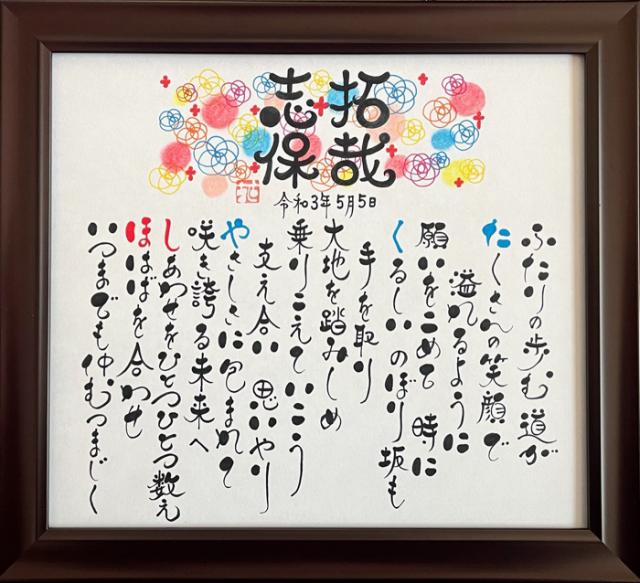 拓哉
志保
令和3年5月5日
ふたりの歩む道が
たくさんの笑顔で
溢れるように
願いをこめて 時に
くるしいのぼり坂も
手を取り
大地を踏みしめ
乗りこえていこう
支え合い 思いやり
やさしさに包まれて
咲き誇る未来へ
しあわせをひとつひとつ数え
ほはばを合わせ
いつまでも仲むつまじく